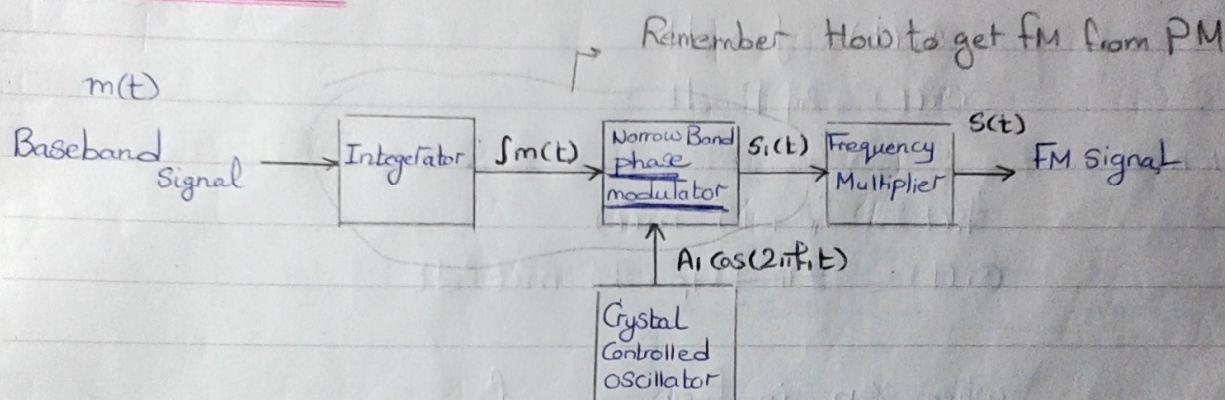 Remember How to get fM from PM
m(t)
Baseband
Signal
Integerator
∫m(t)
Narrow Band
phase
modulator
S₁(t)
Frequency
Multiplier
S(t)
FM Signal
A₁ Cos(2πf₁t)
Crystal
Controlled
Oscillator